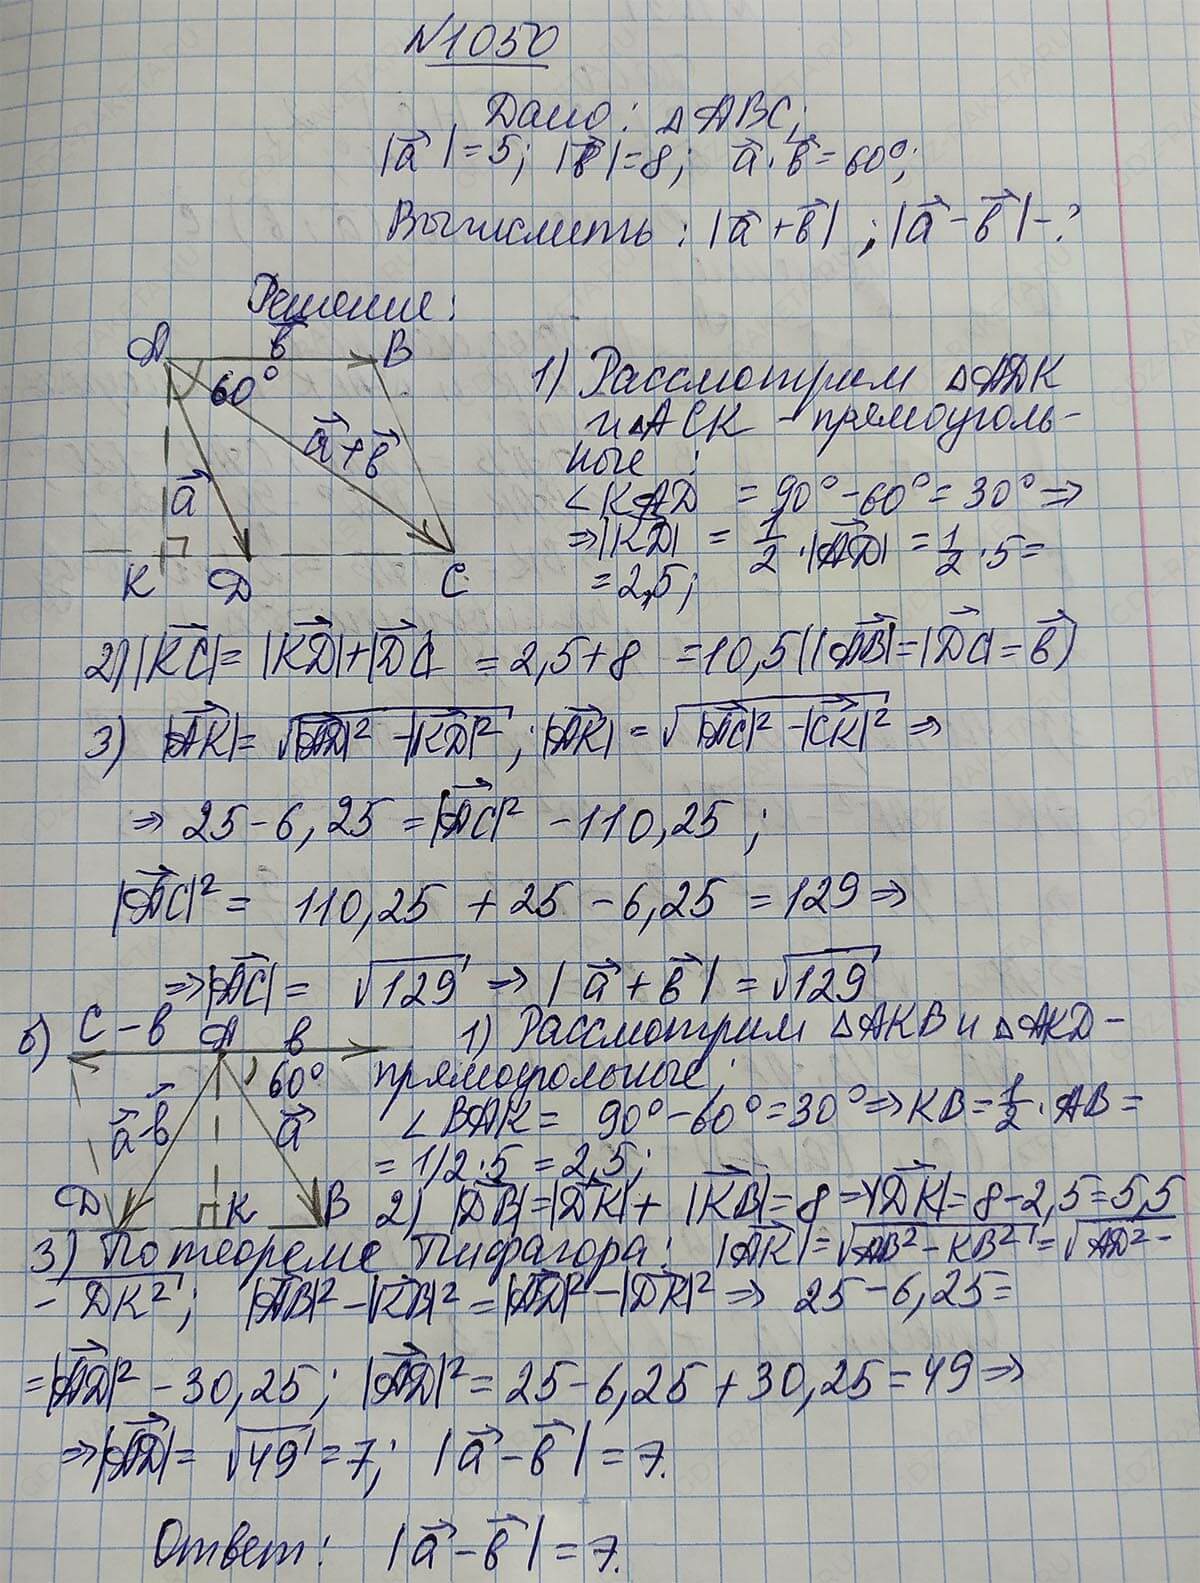 N1050
Дано: △ABC;
|a⃗|=5; |b⃗|=8; a⃗·b⃗=60°;
Вычислить: |a⃗+b⃗|; |a⃗-b⃗|-?
Решение:
A b⃗ B
60°
a⃗+b⃗
a⃗
K D C
1) Рассмотрим △ADK
и △ACK - прямоуголь-
ные:
∠KAD = 90°-60°=30°⇒
⇒|KD⃗| = 1/2·|AD⃗| = 1/2·5=
=2,5;
2) |KC⃗|= |KD⃗|+|DC⃗| =2,5+8 =10,5 (|AB⃗|=|DC⃗|=b⃗)
3) |AK⃗|= √|AD⃗|²-|KD⃗|²; |AK⃗|= √|AC⃗|²-|CK⃗|² ⇒
⇒ 25-6,25=|AC⃗|² -110,25;
|AC⃗|²= 110,25 +25 -6,25 =129⇒
⇒|AC⃗|= √129 ⇒ |a⃗+b⃗|=√129
б) C -b⃗ A b⃗
60°
a⃗-b⃗ a⃗
D K B
1) Рассмотрим △AKB и △AKD-
прямоугольные;
∠BAK= 90°-60°=30°⇒KB=1/2·AB=
=1/2·5=2,5;
2) |DB⃗|=|DK⃗|+ |KB⃗|=8⇒|DK⃗|=8-2,5=5,5
3) По теореме Пифагора: |AK⃗|=√AB²-KB²=√AD²-
-DK²; |AB⃗|²-|KB⃗|²=|AD⃗|²-|DK⃗|²⇒ 25-6,25=
=|AD⃗|²-30,25; |AD⃗|²=25-6,25+30,25=49⇒
⇒|AD⃗|= √49=7; |a⃗-b⃗|=7.
Ответ: |a⃗-b⃗|=7.